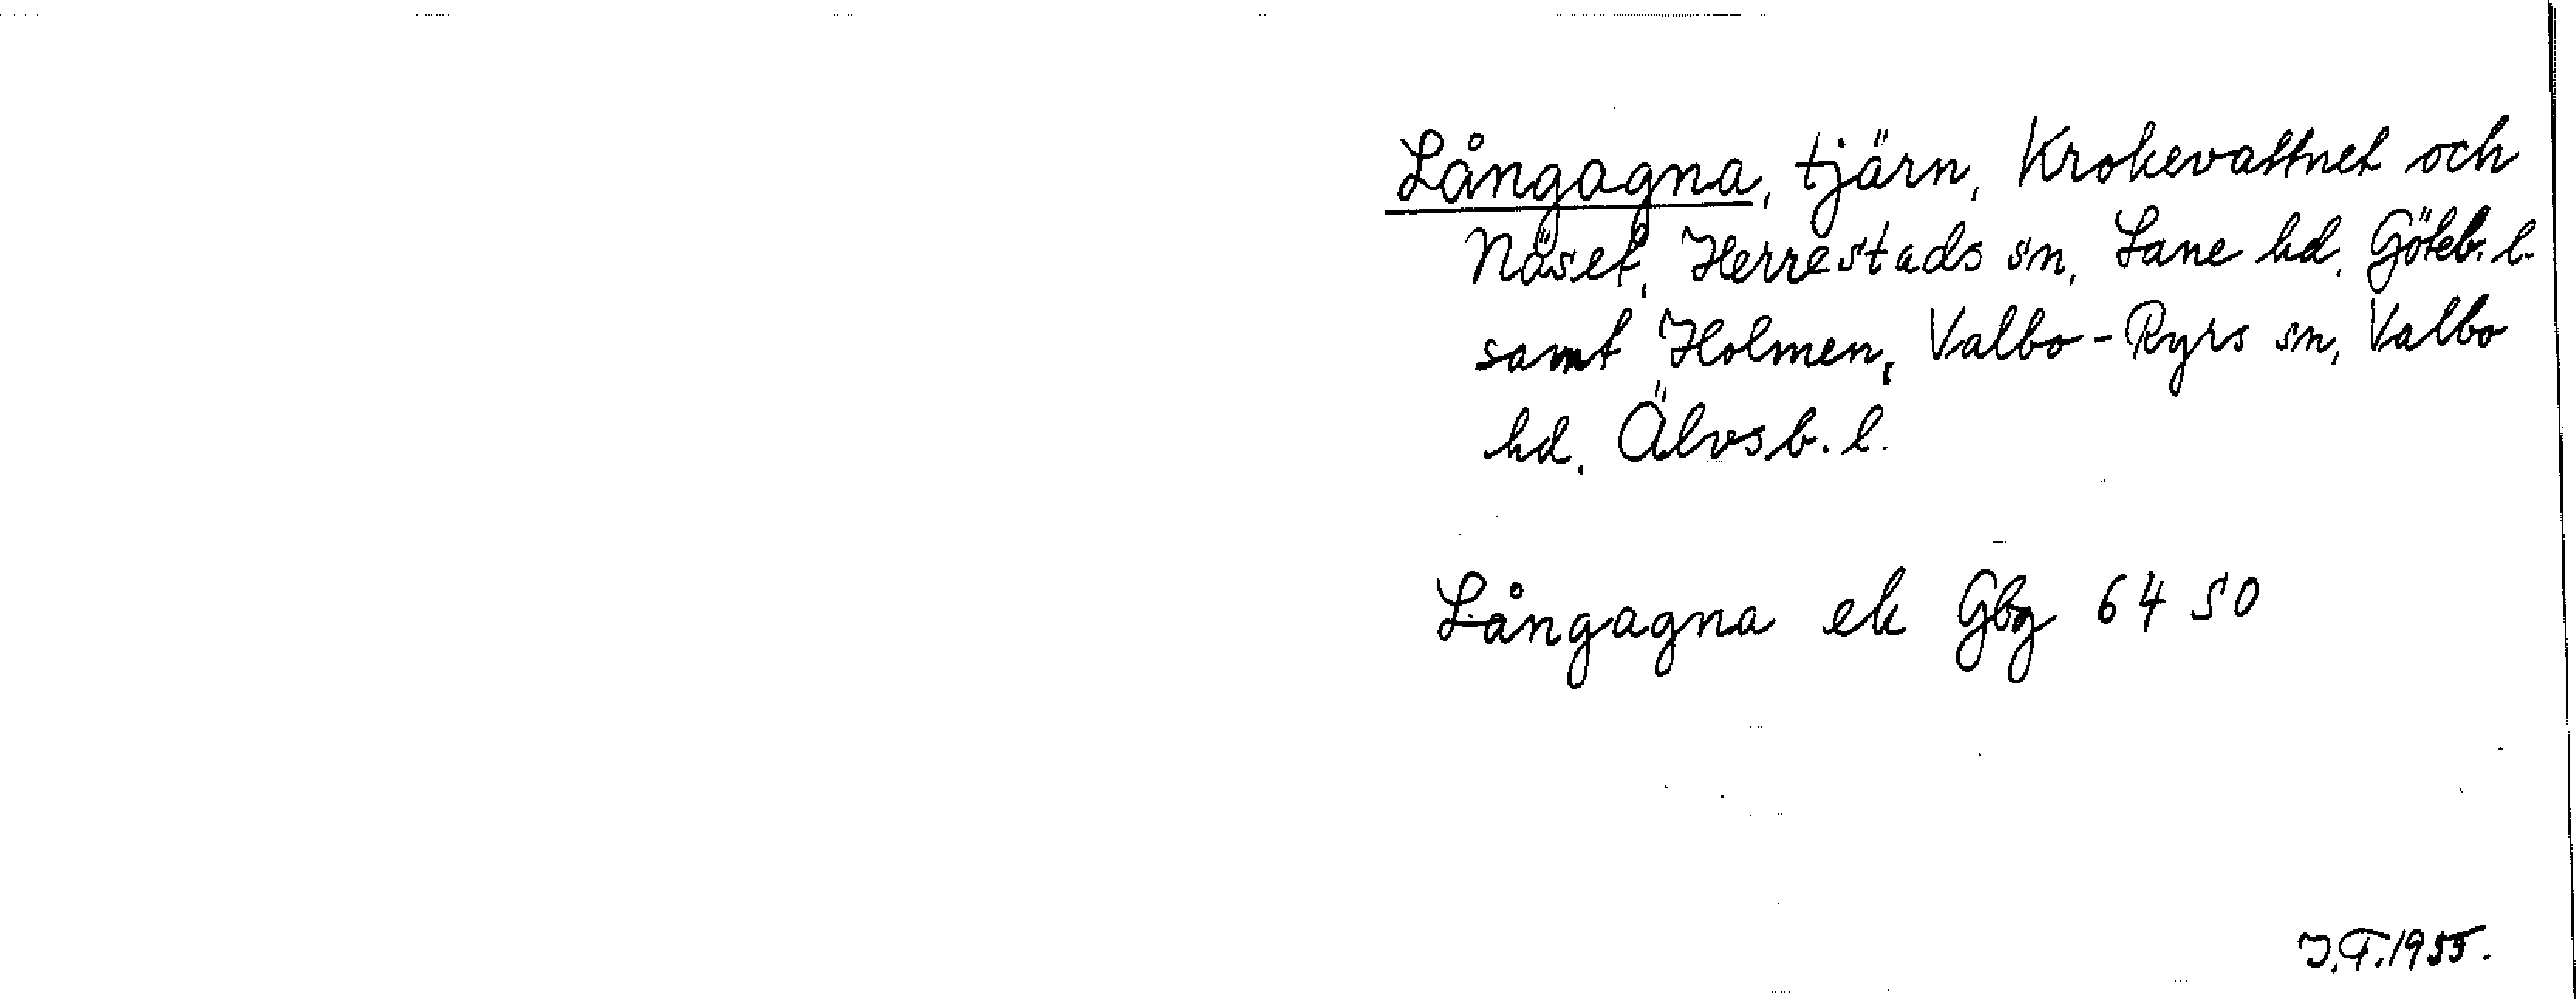 Långagna, tjärn, Krokevattnet och
Näset, Herrestads sn, Lane hd, Göteb. l.
samt Holmen, Valbo-Ryrs sn, Valbo
hd, Älvsb. l.
Långagna ek Gbg 64 SO
I.T. 1955.